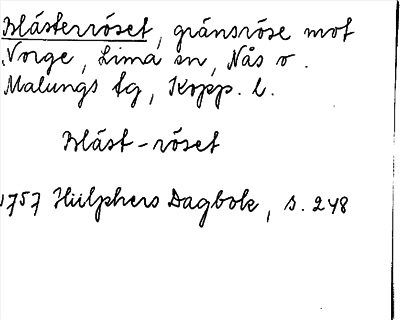 Blästerröset, gränsröse mot
Norge, Lima sn, Nås o.
Malungs tg, Kopp. l.
Bläst-röset
1757 Hülphers Dagbok, s. 248